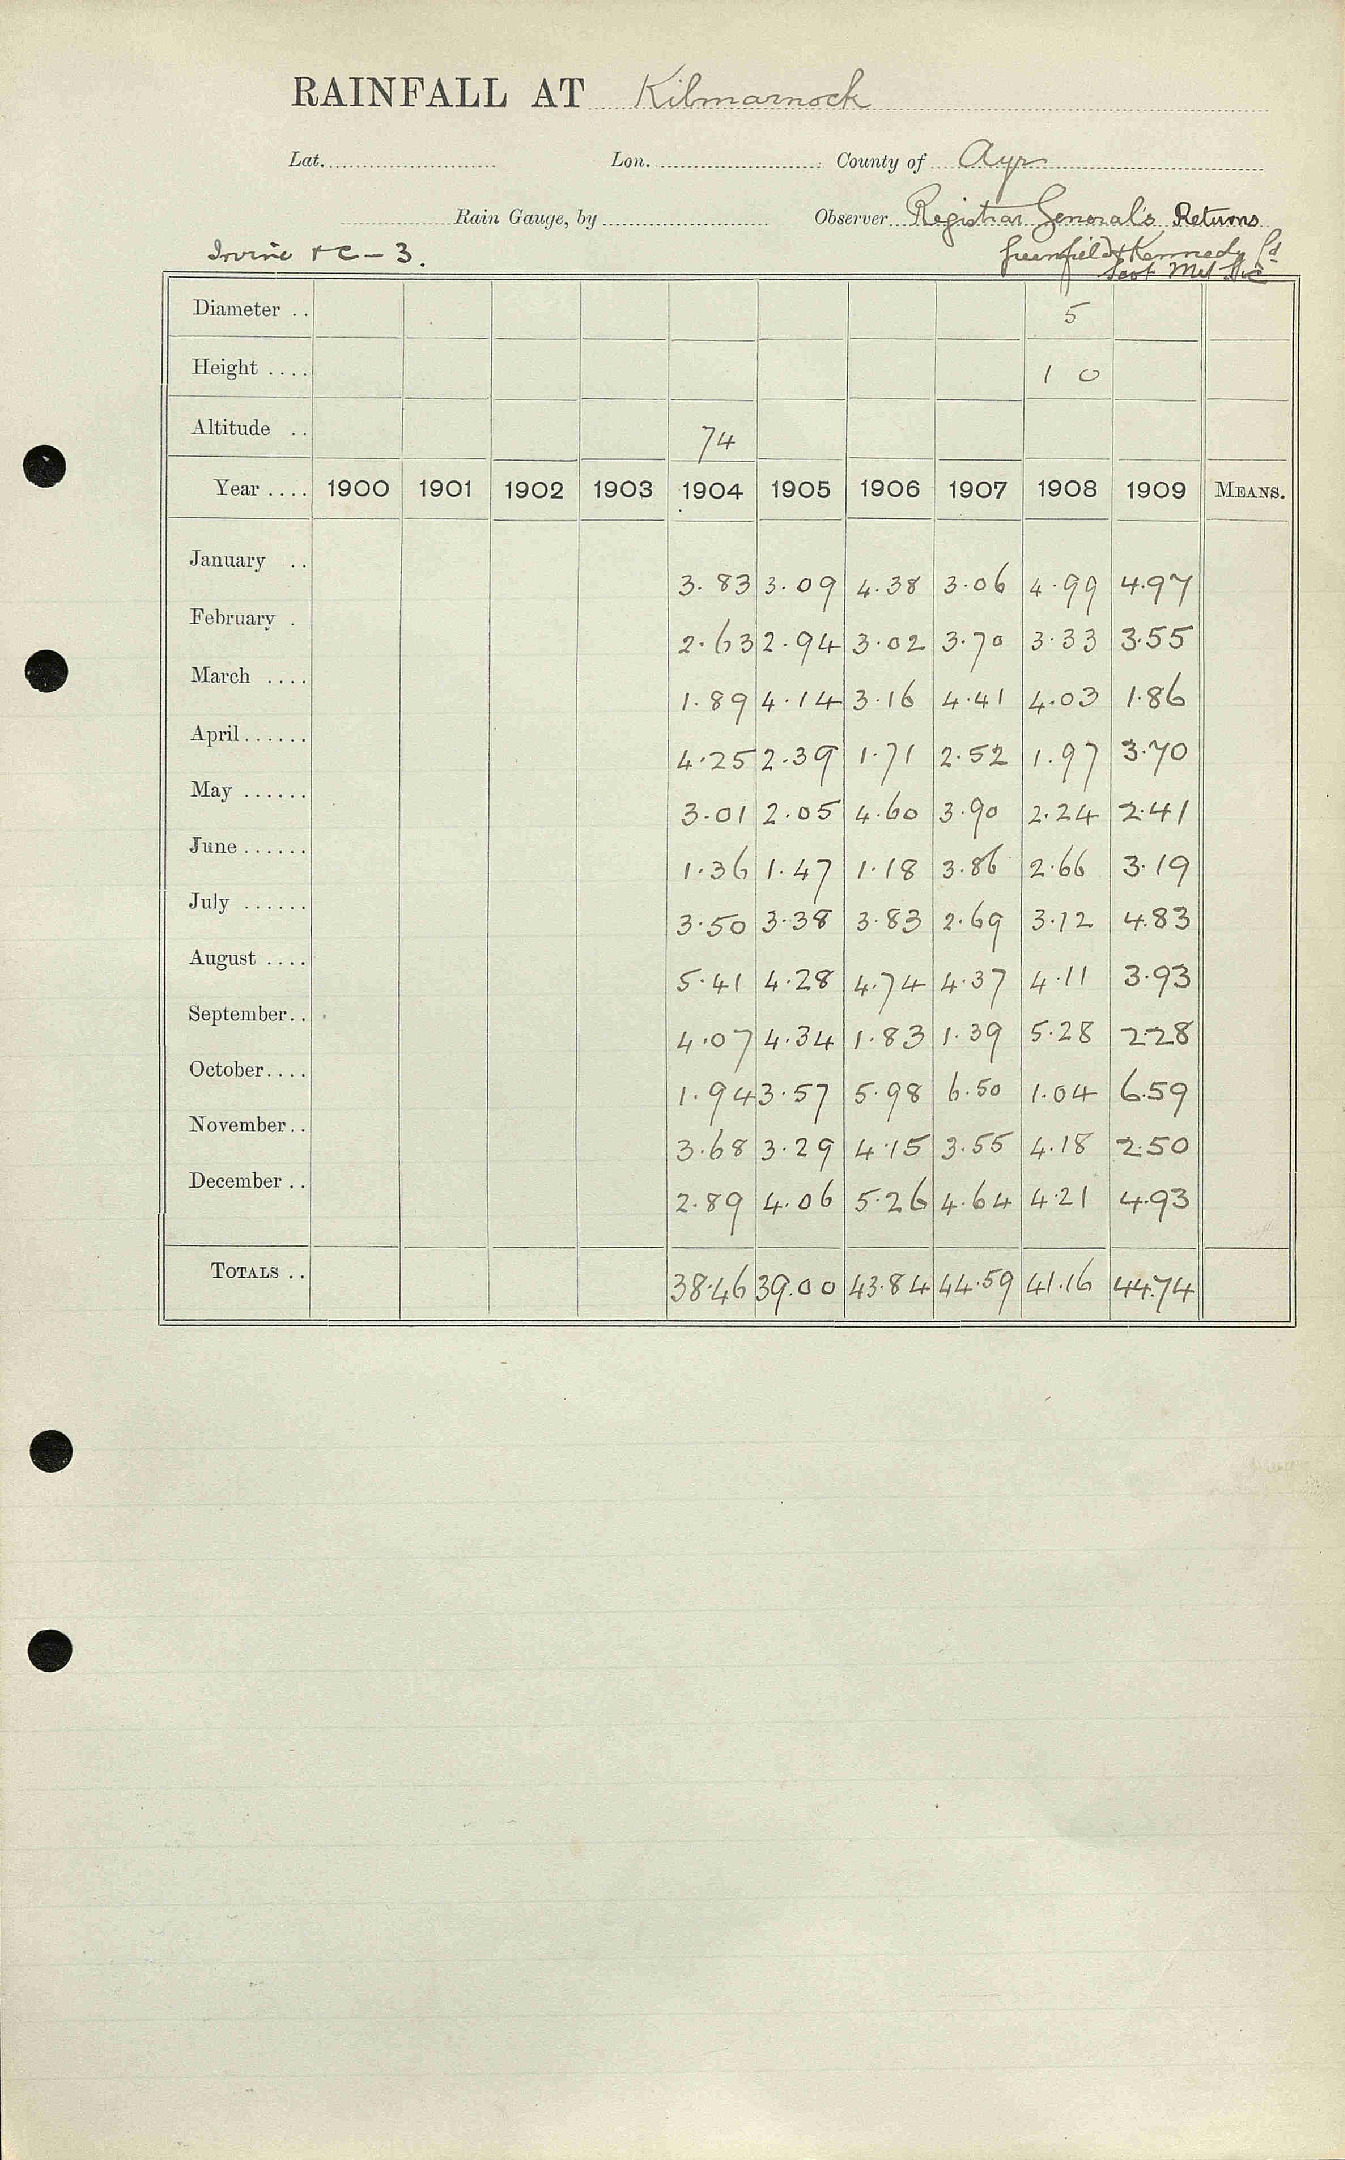 RAINFALL AT Kilmarnock
Lat. Lon. County of Ayr
Rain Gauge, by Observer Registrar General's Returns
Irvine &c - 3. Greenfield Kennedy
Scot Met Soc
Diameter .. 5
Height .... 1 0
Altitude .. 74
Year .... 1900 1901 1902 1903 1904 1905 1906 1907 1908 1909 MEANS.
January .. 3.83 3.09 4.38 3.06 4.99 4.97
February . 2.63 2.94 3.02 3.70 3.33 3.55
March .... 1.89 4.14 3.16 4.41 4.03 1.86
April...... 4.25 2.39 1.71 2.52 1.97 3.70
May ...... 3.01 2.05 4.60 3.90 2.24 2.41
June...... 1.36 1.47 1.18 3.86 2.66 3.19
July ...... 3.50 3.38 3.83 2.69 3.12 4.83
August .... 5.41 4.28 4.74 4.37 4.11 3.93
September.. 4.07 4.34 1.83 1.39 5.28 2.28
October.... 1.94 3.57 5.98 6.50 1.04 6.59
November.. 3.68 3.29 4.15 3.55 4.18 2.50
December .. 2.89 4.06 5.26 4.64 4.21 4.93
TOTALS .. 38.46 39.00 43.84 44.59 41.16 44.74